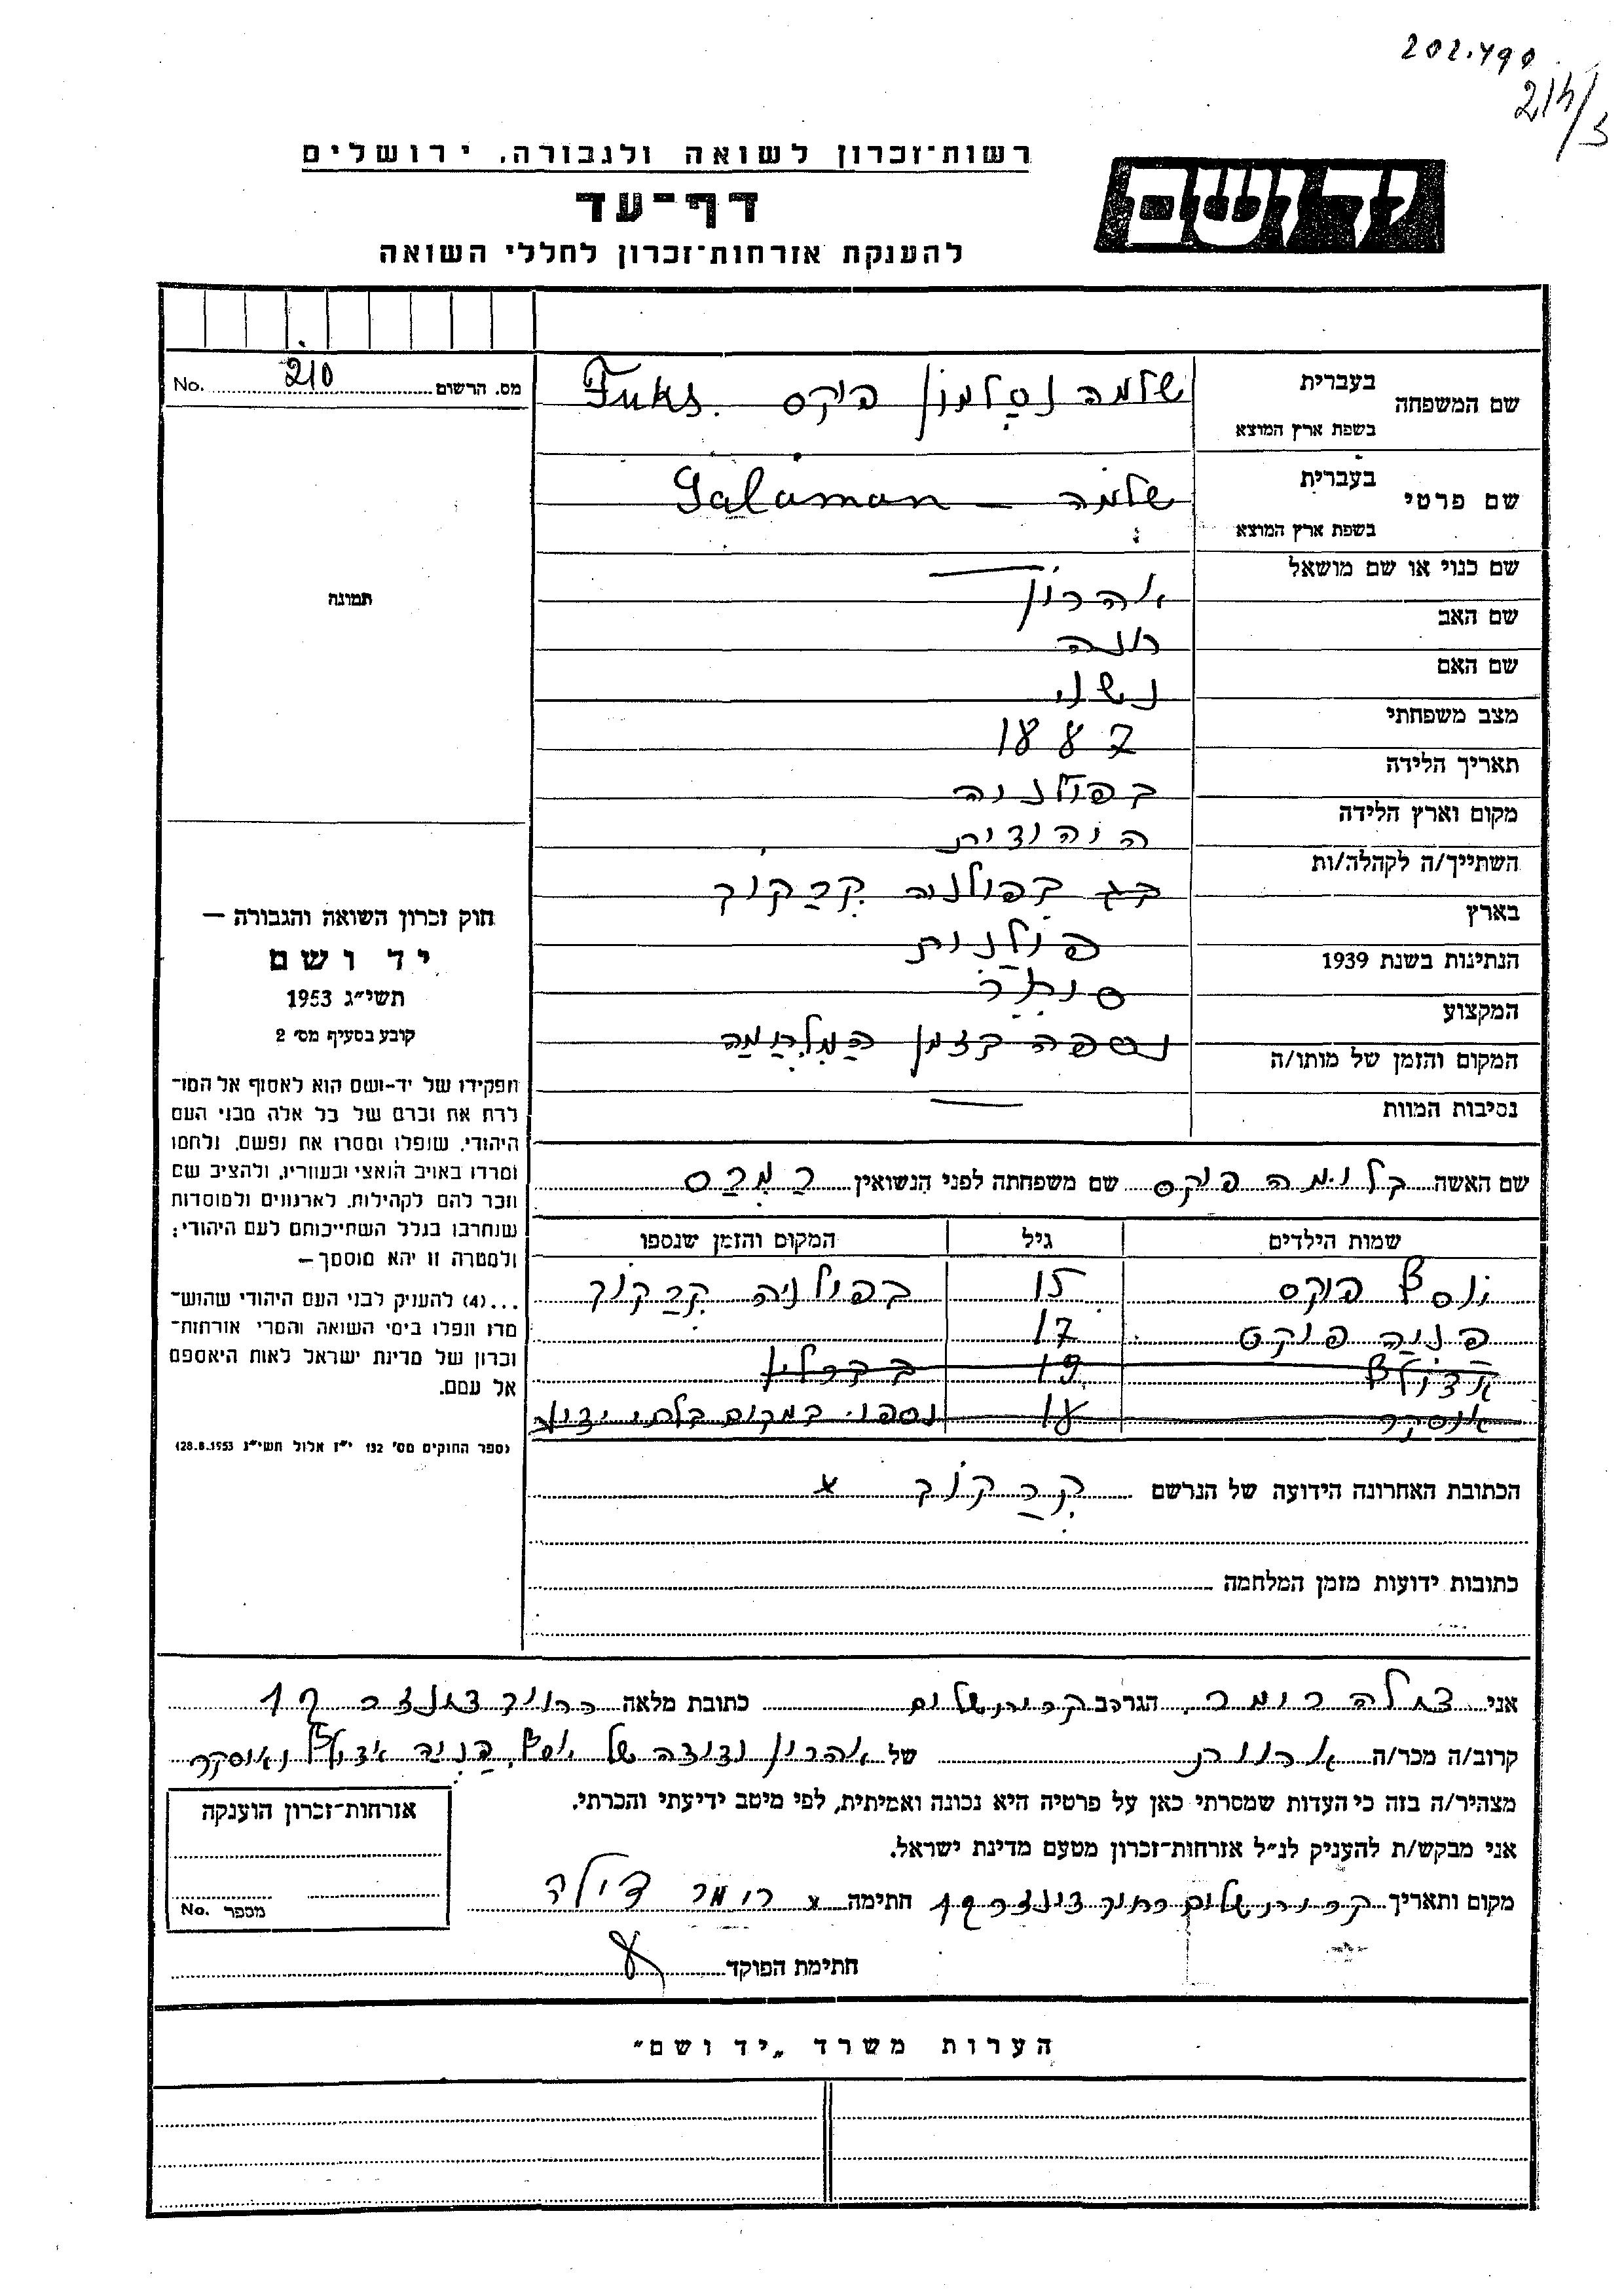 202.490
214/3
רשות־זכרון לשואה ולגבורה, ירושלים
יד ושם
דף־עד
להענקת אזרחות־זכרון לחללי השואה
מס. הרשום 210 No.
שם המשפחה בעברית שלמה סלמון פוקס. Fuks
בשפת ארץ המוצא
שם פרטי בעברית שלמה – Salaman
בשפת ארץ המוצא
שם כנוי או שם מושאל —
שם האב אהרון
שם האם
מצב משפחתי נשוי
תאריך הלידה
מקום וארץ הלידה בפולניה
השתייך/ה לקהלה/ות היהודית
בארץ בפולניה קרקוב
הנתינות בשנת 1939 פולנית
המקצוע סוחר
המקום והזמן של מותו/ה נספה בזמן המלחמה
נסיבות המוות —
תמונה
חוק זכרון השואה והגבורה —
יד ושם
תשי״ג 1953
קובע בסעיף מס׳ 2
תפקידו של יד-ושם הוא לאסוף אל המו־
לדת את זכרם של כל אלה מבני העם
היהודי, שנפלו ומסרו את נפשם, נלחמו
ומרדו באויב הנאצי ובעוזריו, ולהציב שם
וזכר להם לקהילות, לארגונים ולמוסדות
שנחרבו בגלל השתייכותם לעם היהודי;
ולמטרה זו יהא מוסמך –
...(4) להעניק לבני העם היהודי שהוש־
מדו ונפלו בימי השואה והמרי אזרחות־
זכרון של מדינת ישראל לאות היאספם
אל עמם.
(ספר החוקים מס׳ 132 י״ז אלול תשי״ג 28.8.1953)
שם האשה בלומה פוקס שם משפחתה לפני הנשואין
שמות הילדים גיל המקום והזמן שנספו
יוסף פוקס 15 בפולניה קרקוב
פניה פוקס 17
אדולף 19 בברלין
אוסקר 18 נספו במקום בלתי ידוע
הכתובת האחרונה הידועה של הנרשם קרקוב
כתובות ידועות מזמן המלחמה
אני צילה רומר הגר/ה בירושלים כתובת מלאה
קרוב/ה מכר/ה של אהרון ודודה של יוסף פניה אדולף ואוסקר
מצהיר/ה בזה כי העדות שמסרתי כאן על פרטיה היא נכונה ואמיתית, לפי מיטב ידיעתי והכרתי.
אני מבקש/ת להעניק לנ״ל אזרחות־זכרון מטעם מדינת ישראל.
מקום ותאריך חתימה רומר צילה
חתימת הפוקד
אזרחות־זכרון הוענקה
מספר No.
הערות משרד „יד ושם״